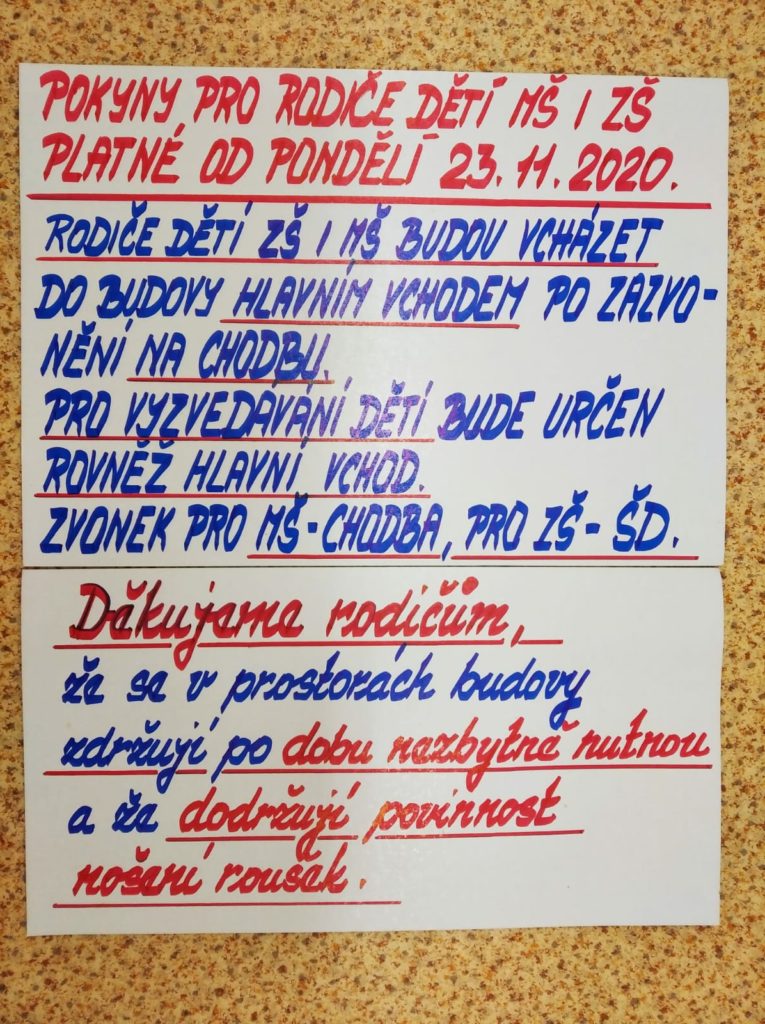 POKYNY PRO RODIČE DĚTÍ MŠ I ZŠ
PLATNÉ OD PONDĚLÍ 23. 11. 2020.
RODIČE DĚTÍ ZŠ I MŠ BUDOU VCHÁZET
DO BUDOVY HLAVNÍM VCHODEM PO ZAZVO-
NĚNÍ NA CHODBU.
PRO VYZVEDÁVÁNÍ DĚTÍ BUDE URČEN
ROVNĚŽ HLAVNÍ VCHOD.
ZVONEK PRO MŠ-CHODBA, PRO ZŠ- ŠD.
Děkujeme rodičům,
že se v prostorách budovy
zdržují po dobu nezbytně nutnou
a že dodržují povinnost
nošení roušek.